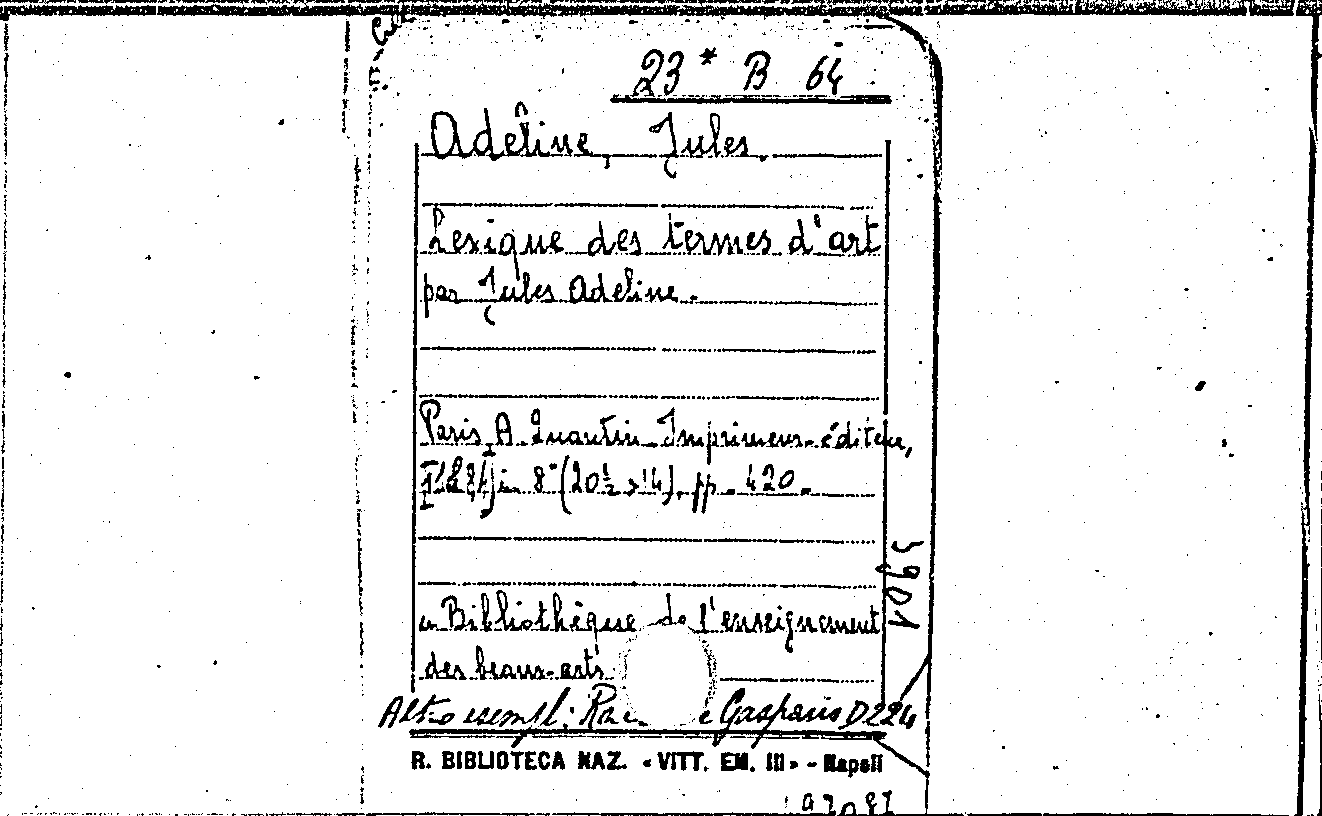 23* B 64
Adeline, Jules.
Lexique des termes d'art
par Jules Adeline.
Paris, A. Quantin Imprimeur-éditeur,
in 8° (20½ × 14), pp. 420.
3901
Bibliothèque de l'enseignement
des beaux-arts
Altro esempl: Gasparis D224
R. BIBLIOTECA NAZ. «VITT. EM. III» - Napoli